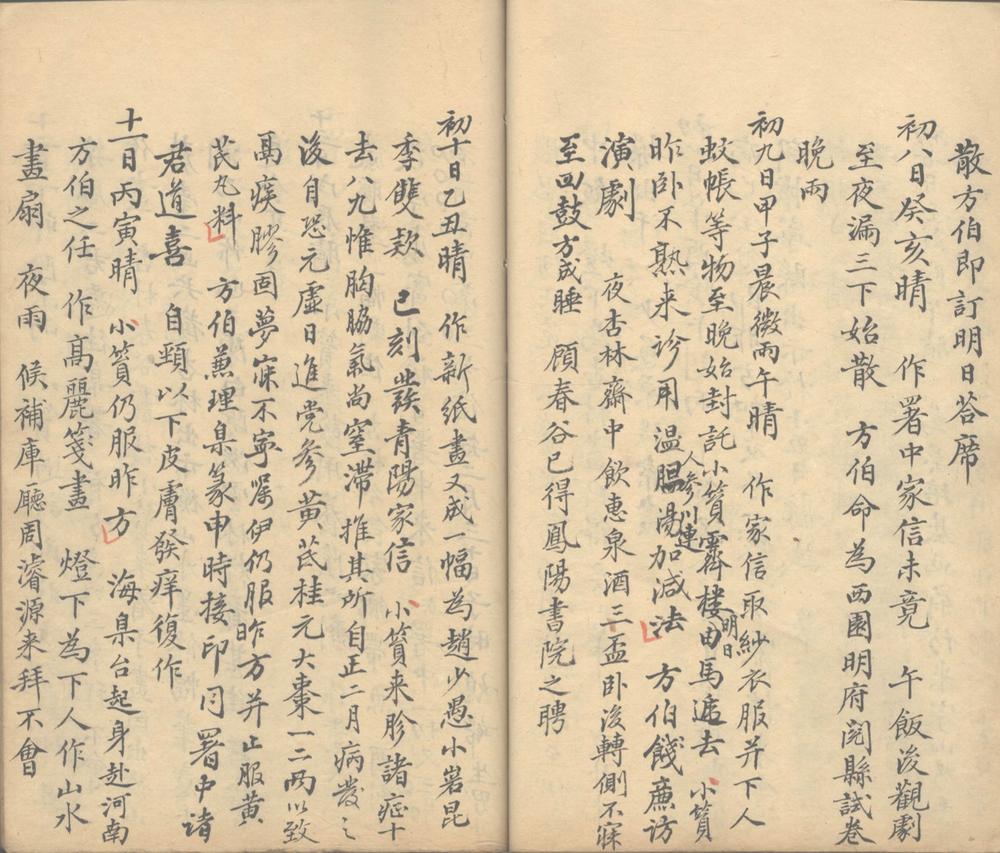 散方伯即訂明日荅席
初八日癸亥晴　作署中家信未竟　午飯後觀劇
至夜漏三下始散　方伯命為西園明府閱縣試卷
晚雨
初九日甲子晨微雨午晴　作家信取紗衣服并下人
蚊帳等物至晚始封託小篔霽樓明日由馬遞去　小篔
昨卧不熟来診用温膽湯加減法人參川連　方伯餞廉访
演劇　夜杏林齋中飲惠泉酒三盃卧後轉側不寐
至四鼓方成睡　顧春谷已得鳳陽書院之聘
初十日乙丑晴　作新紙畫又成一幅為趙少愚小岩昆
季雙欵　巳刻發青陽家信　小篔来胗諸症十
去八九惟胸脇氣尚窒滯推其所自正二月病發之
後自恐元虛日進党参黃芪桂元大棗一二两以致
痰膠固夢寐不寧囑伊仍服昨方并止服黃
芪丸料　方伯兼理臬篆申時接印同署中诸
君道喜　自頸以下皮膚發痒復作
十一日丙寅晴　小篔仍服昨方　海臬台起身赴河南
方伯之任　作高麗箋畫　燈下為下人作山水
畫扇　夜雨　候補庫廳周濬源来拜不會